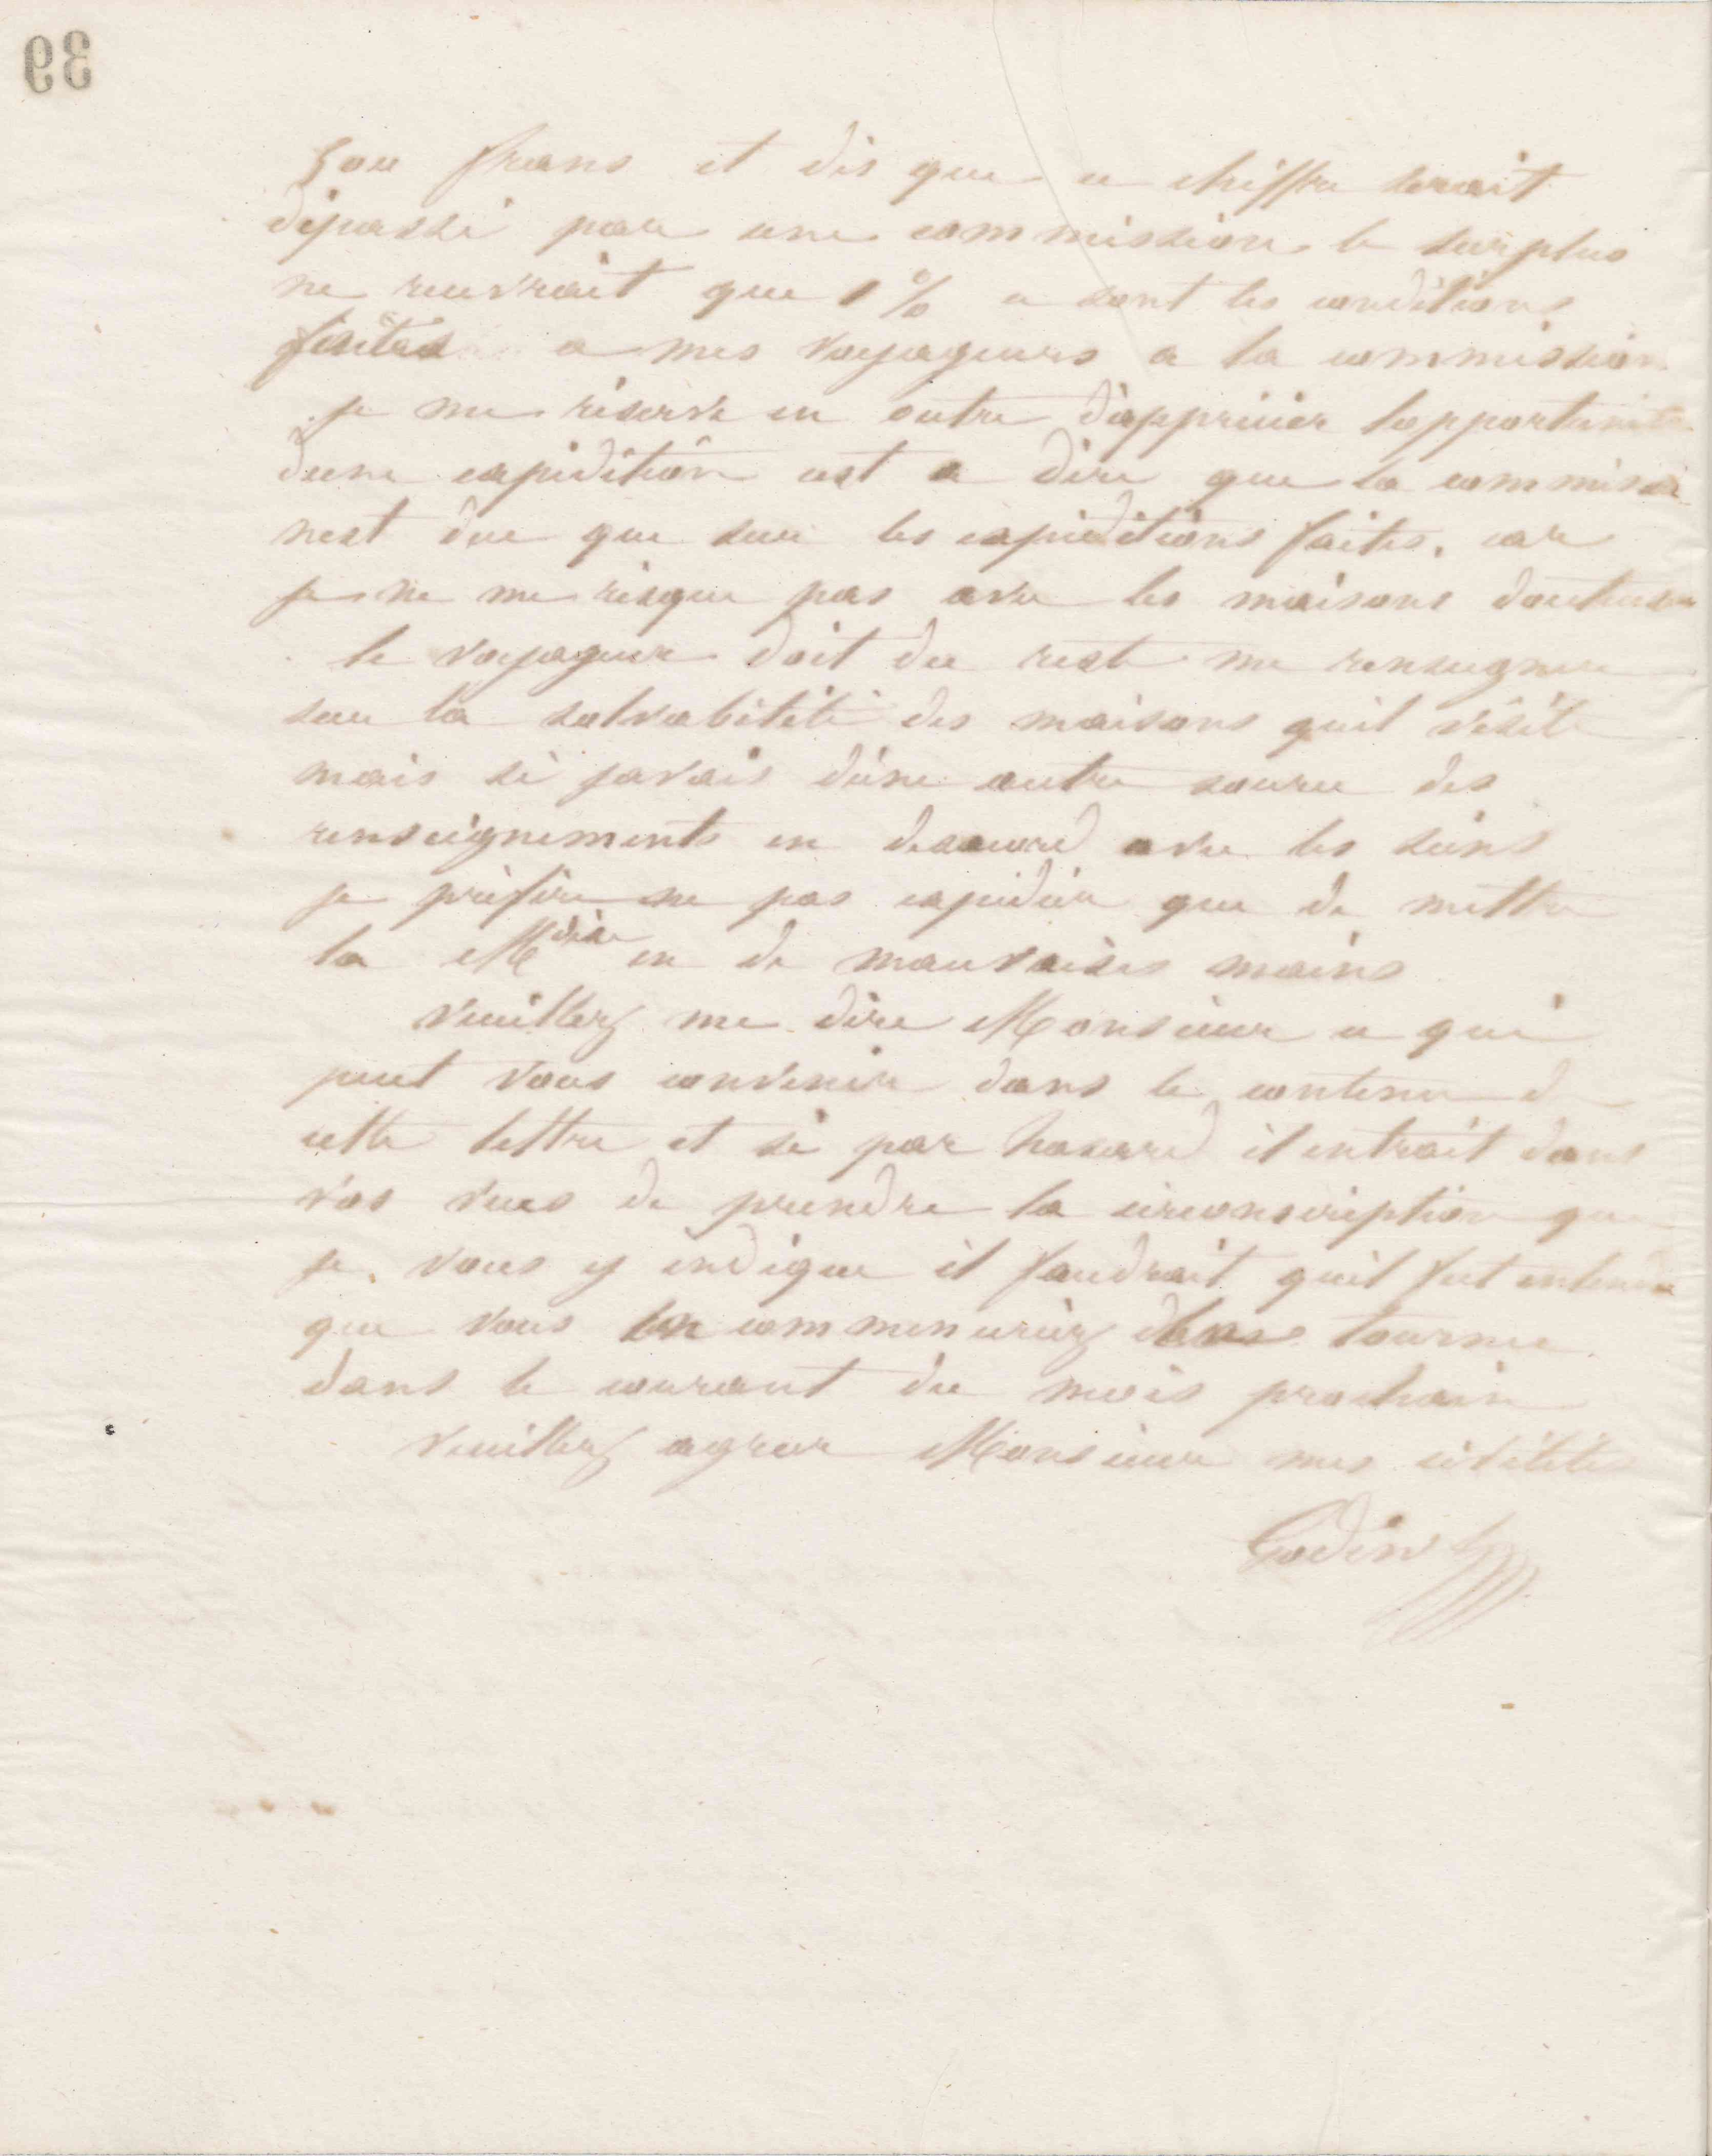 39
500 francs et dis que ce chiffre serait
dépassé par une commission le surplus
ne recevrait que 1 % ce sont les conditions
faites a mes voyageurs a la commission
je me réserve en outre d'apprécier lopportunité
dune expédition cest a dire que la commission
nest due que sur les expéditions faites, car
je ne me risque pas avec les maisons douteuses
le voyageur doit du reste me renseigner
sur la solvabilité des maisons quil visite
mais si javais dune autre source des
renseignements en desaccord avec les siens
je préfère ne pas expédier que de mettre
la Mdise en de mauvaises mains
veuillez me dire Monsieur ce qui
peut vous convenir dans le contenu de
cette lettre et si par hasard il entrait dans
vos vues de prendre la circonscription que
je vous y indique il faudrait quil fut entendu
que vous commenceriez tournee
dans le courant du mois prochain
veuillez agreer Monsieur mes civilités
Godin